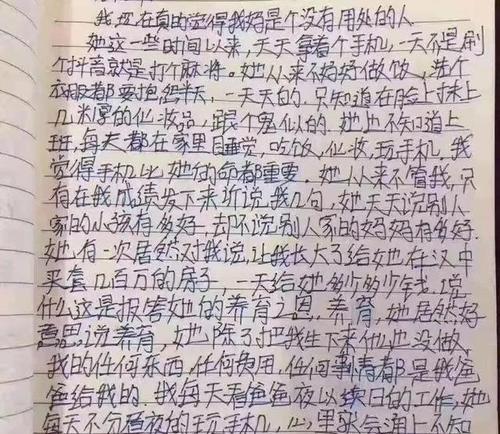 我现在真的觉得我妈是个没有用处的人
她这一些时间以来,天天拿着个手机,一天不是刷
个抖音就是打个麻将。她从来不好好做饭,洗个
衣服都要抱怨半天,一天天的.只知道在脸上抹上
几米厚的化妆品,跟个鬼似的.她也不知道上
班,每天都在家里睡觉,吃饭,化妆,玩手机.我
觉得手机比她的命都重要.她从来不管我,只
有在我成绩发下来近说我几句,她天天说别人
家的小孩有多好,却不说别人家的妈妈有多好.
她有一次居然对我说,让我长大了给她在汉中
买套几百万的房子,一天给她多少多少钱.说
什么这是报答她的养育之恩.养育,她居然好
意思说养育,她除了把我生下来什么也没做.
我的任何东西,任何费用,任何事情都是我爸
爸给我的.我每天看爸爸夜以续日的工作,她
每天不分昼夜的玩手机,心里就会涌上不知